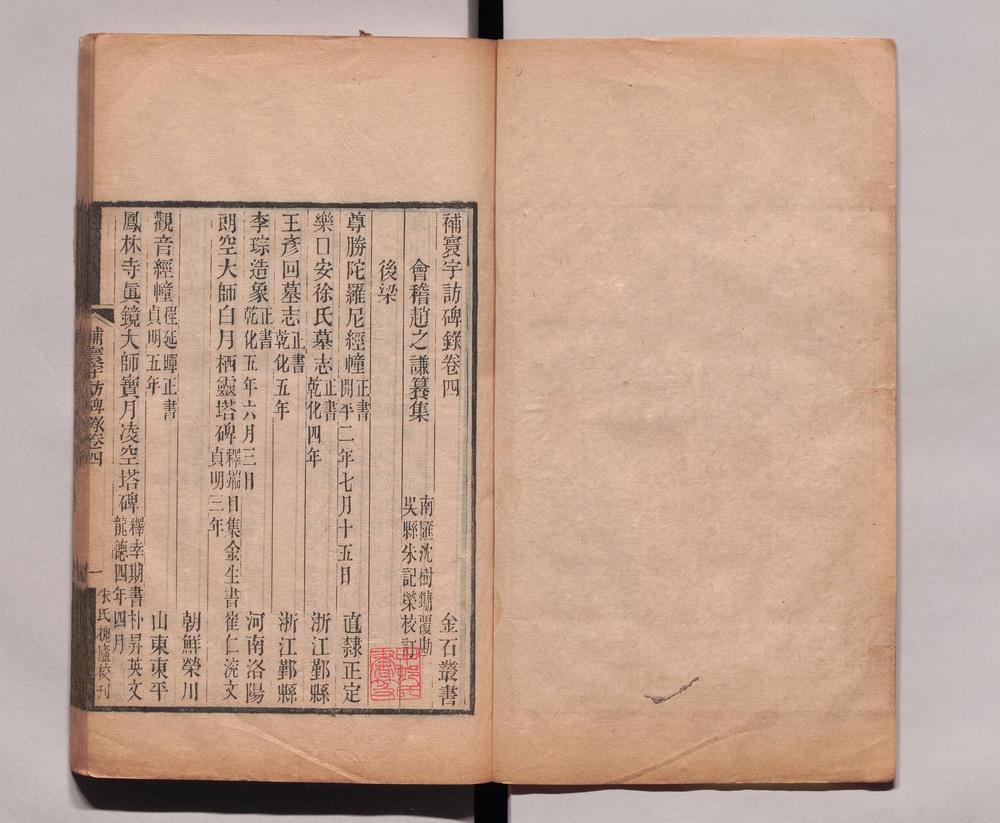 補寰宇訪碑錄卷四
金石叢書
會稽趙之謙纂集
南匯沈樹鏞覆勘
吳縣朱記榮校訂
後梁
尊勝陀羅尼經幢
正書
開平二年七月十五日
直隸正定
樂口安徐氏墓志
正書
乾化四年
浙江鄞縣
王彥回墓志
正書
乾化五年
浙江鄞縣
李琮造象
正書
乾化五年六月三日
河南洛陽
朗空大師白月栖靈塔碑
釋端目集金生書崔仁渷文
貞明三年
朝鮮榮川
觀音經幢
程延暉正書
貞明五年
山東東平
鳳林寺眞鏡大師寶月凌空塔碑
釋幸期書朴昇英文
龍德四年四月
補寰宇訪碑錄卷四
一
朱氏槐廬校刊